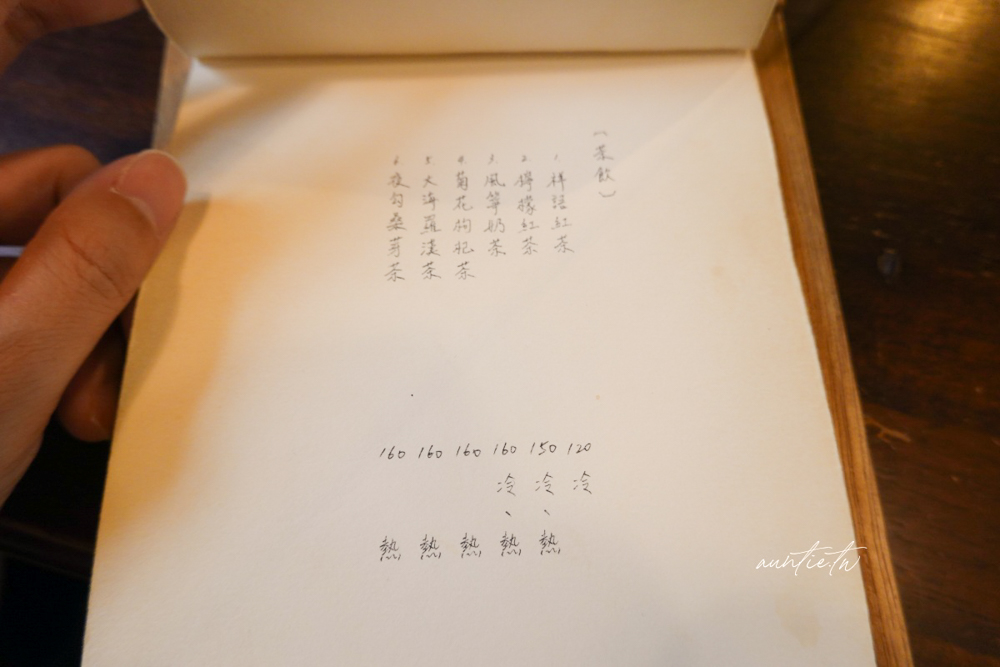 （茶飲）
1. 祥語紅茶 120 冷
2. 檸檬紅茶 150 冷、熱
3. 風箏奶茶 160 冷、熱
4. 菊花枸杞茶 160 熱
5. 大海羅漢茶 160 熱
6. 夜勾桑芽茶 160 熱
auntie.tw